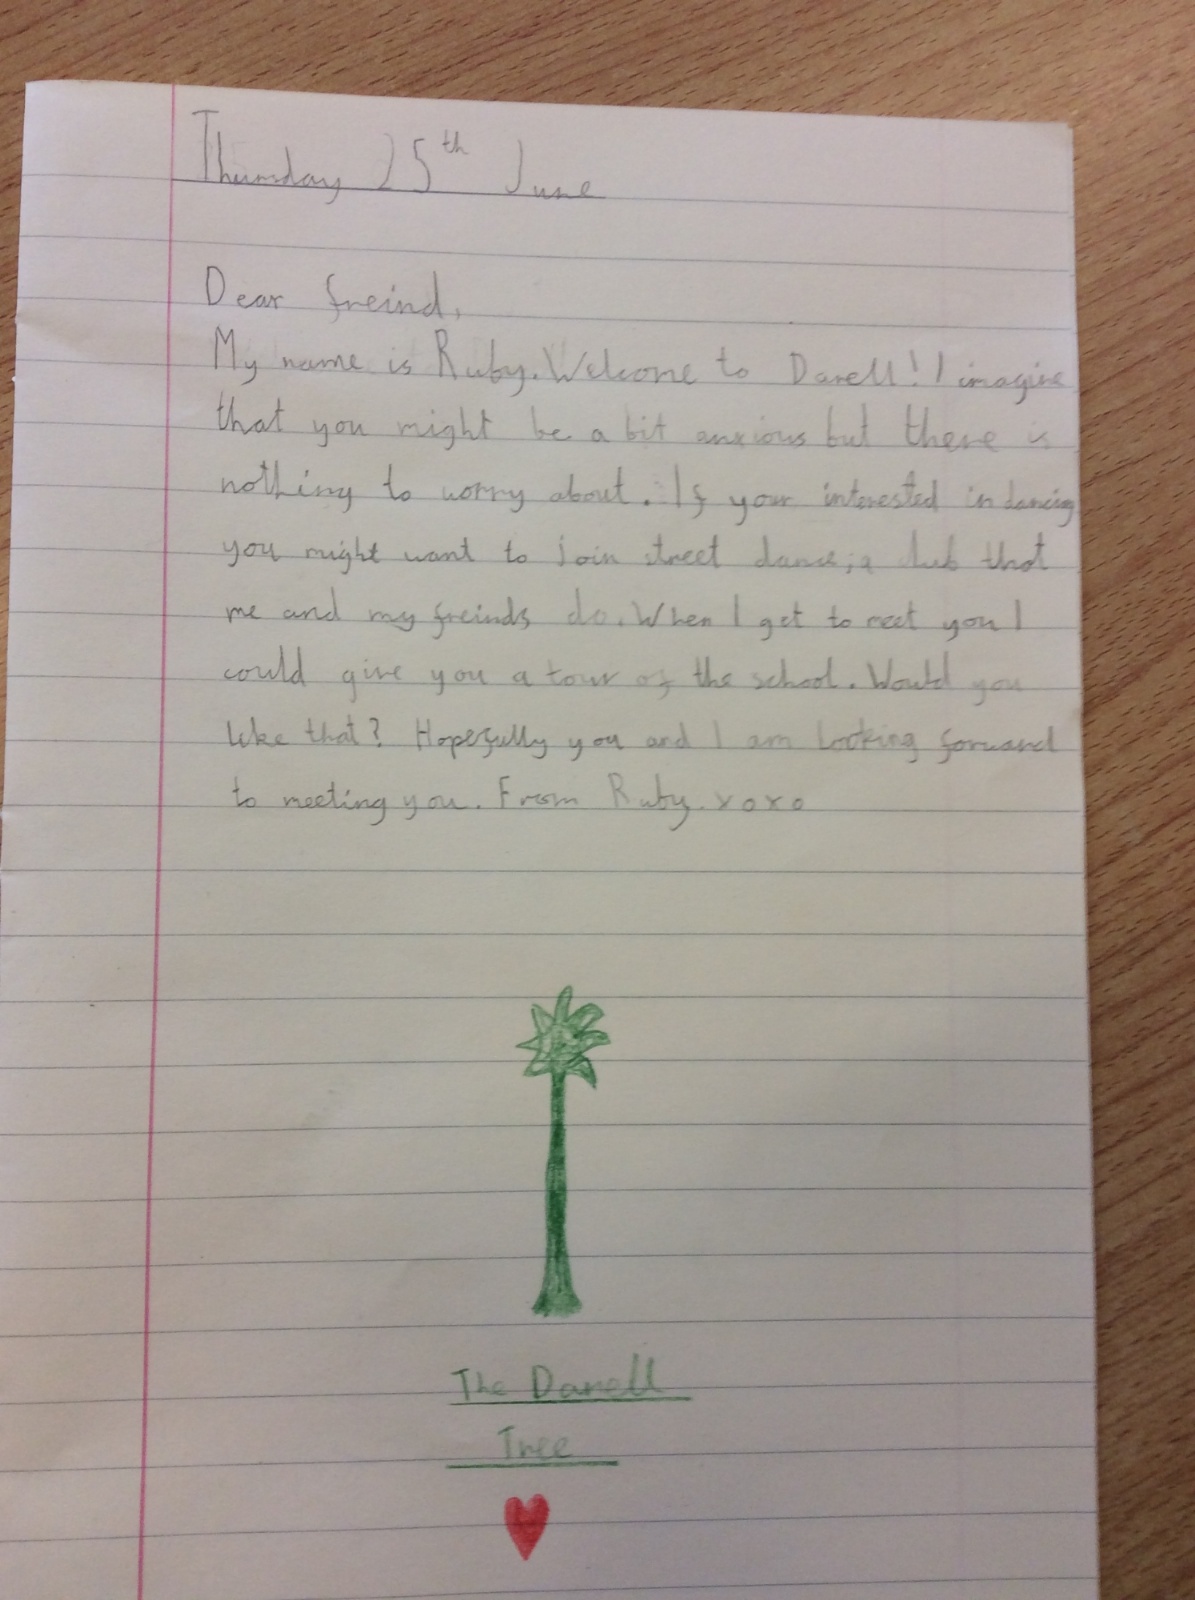 Thursday 25th June
Dear freind,
My name is Ruby. Welcome to Darell! I imagine
that you might be a bit anxious but there is
nothing to worry about. If your interested in dancing
you might want to join street dance; a club that
me and my freinds do. When I get to meet you I
could give you a tour of the school. Would you
like that? Hopefully you and I am looking forward
to meeting you. From Ruby. xoxo
The Darell
Tree